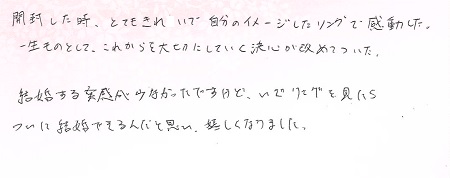 開封した時、とてもきれいで自分のイメージしたリングで感動した。
一生ものとして、これからも大切にしていく決心が改めてついた。
結婚する実感が少なかったですけど、いざリングを見たら
ついに結婚できるんだと思い、嬉しくなりました。